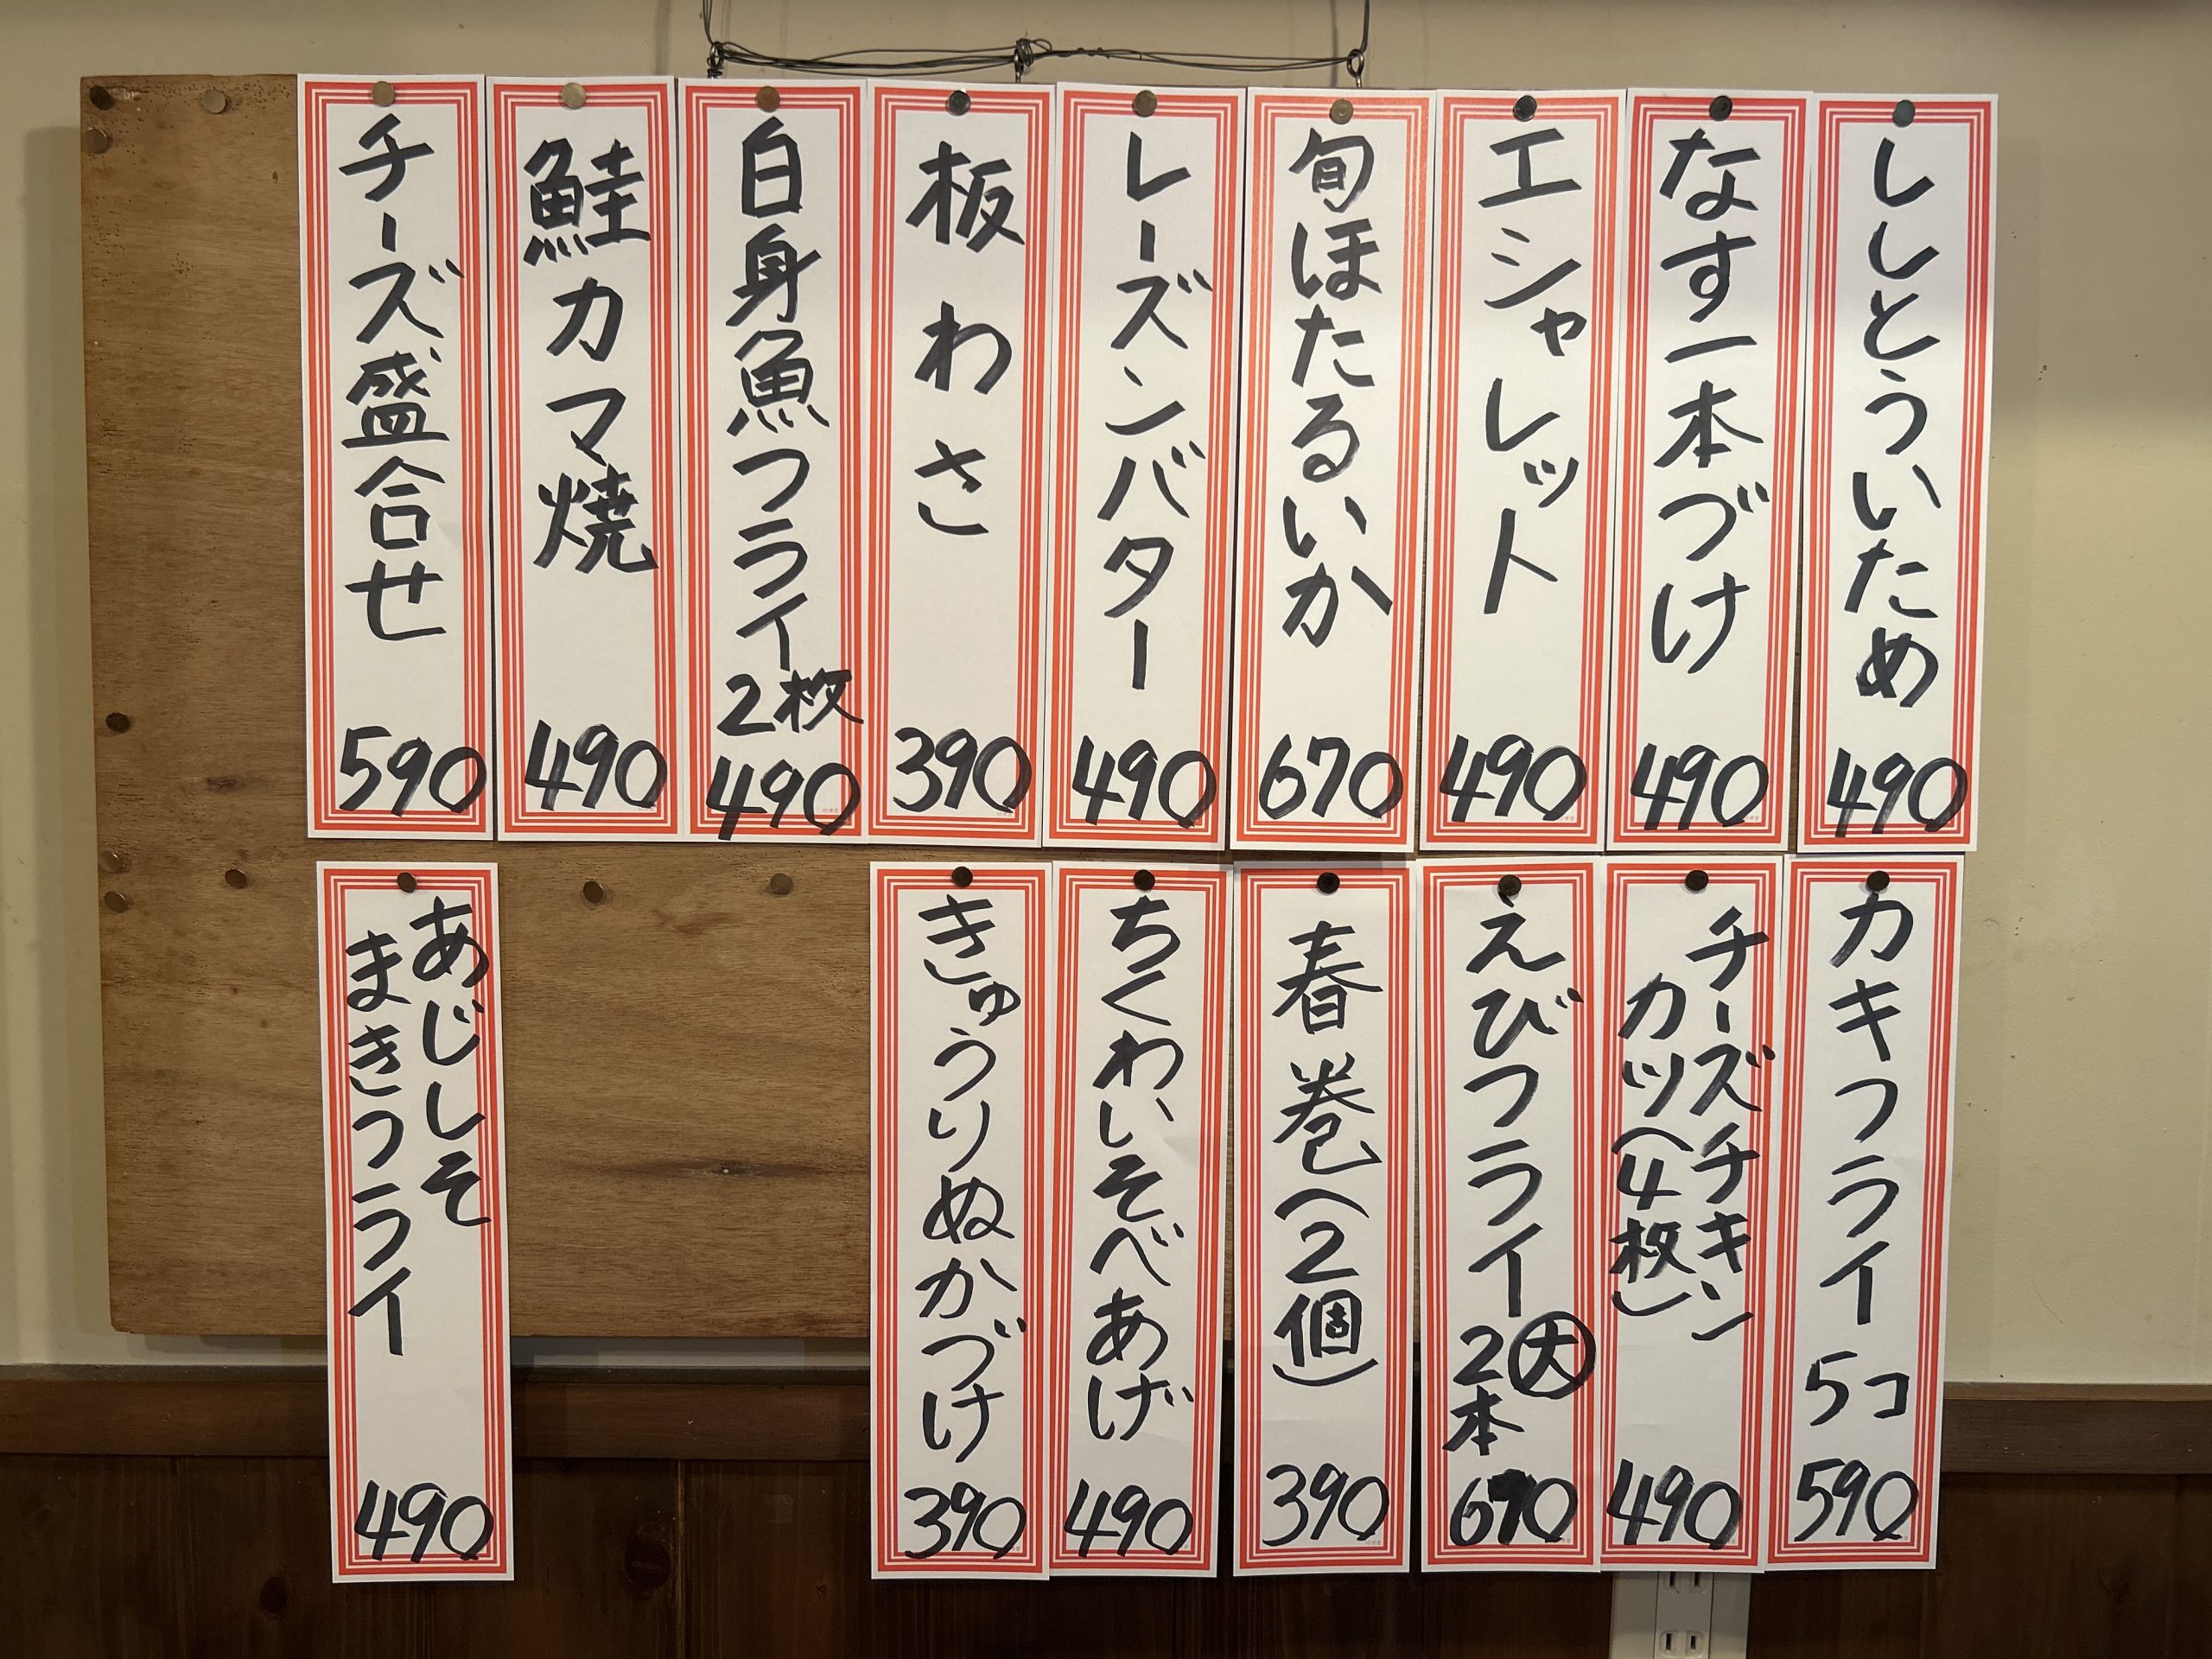 ししとういため
490
なす一本づけ
490
エシャレット
490
旬ほたるいか
670
レーズンバター
490
板わさ
390
白身魚フライ
2枚
490
鮭カマ焼
490
チーズ盛合せ
590
カキフライ 5コ
590
チーズチキン
カツ(4枚)
490
えびフライ
大
2本
690
春巻(2個)
390
ちくわいそべあげ
490
きゅうりぬかづけ
390
あじしそ
まきフライ
490